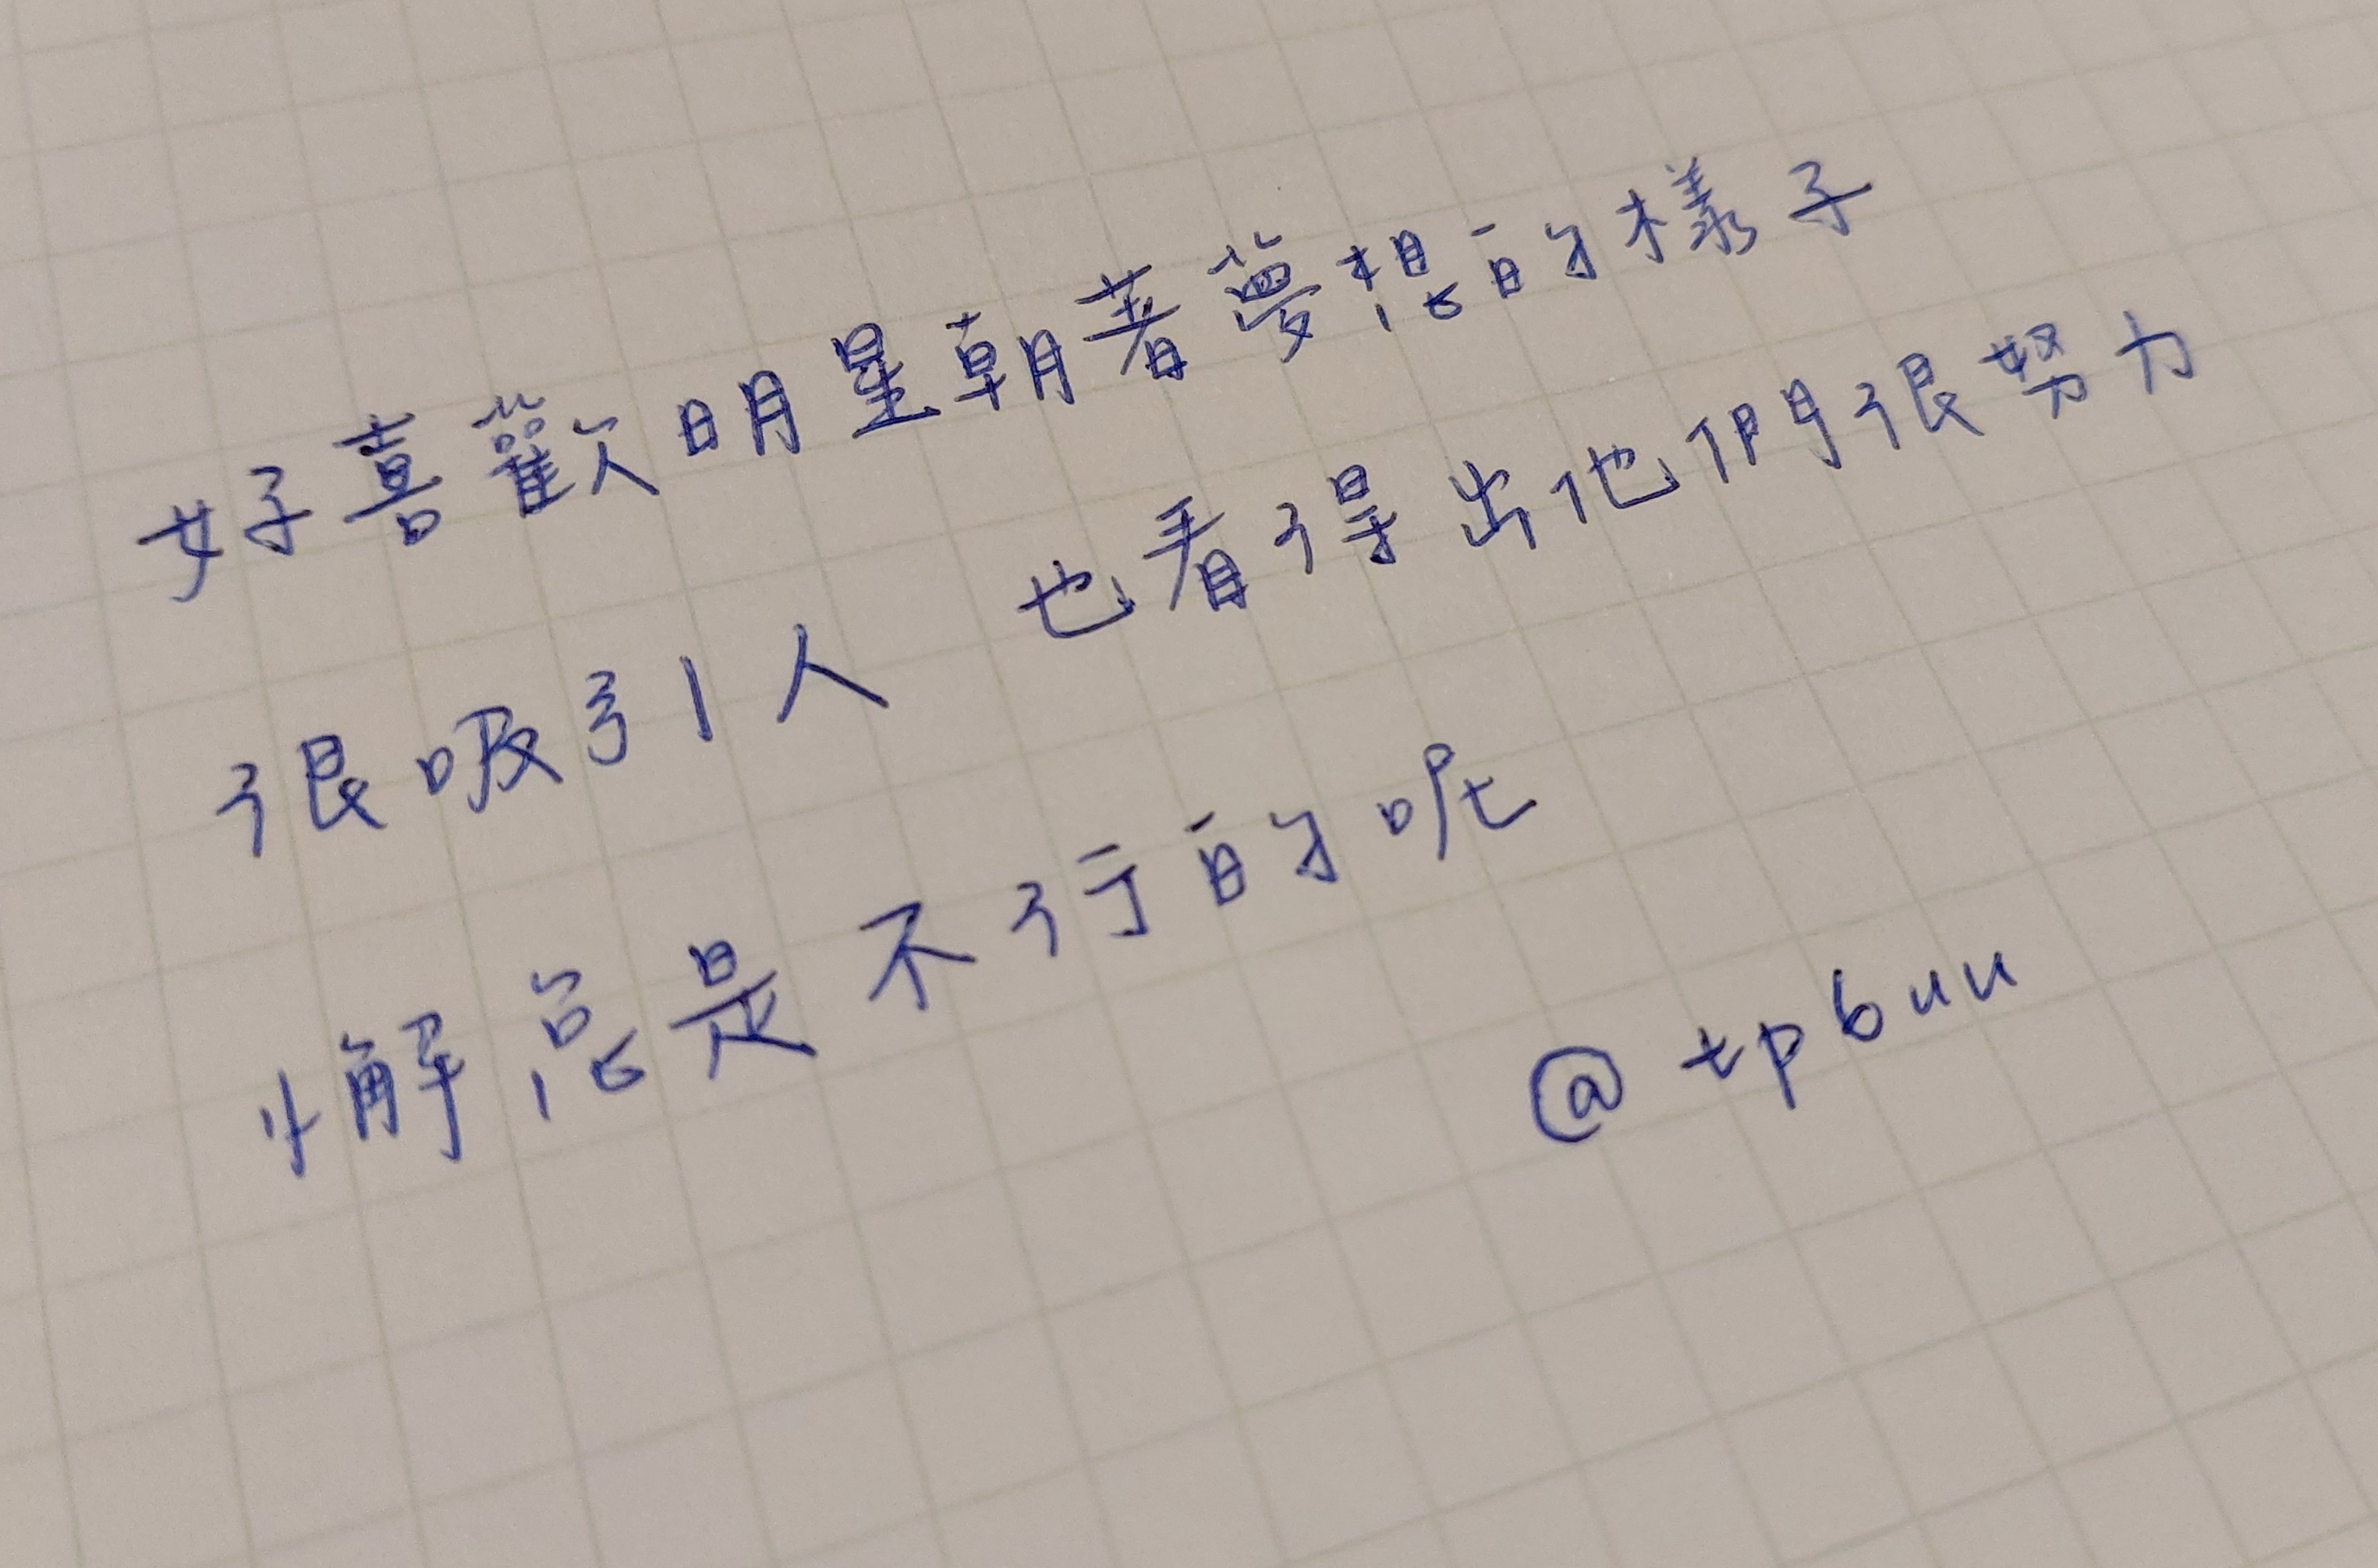 好喜歡明星朝著夢想的樣子
很吸引人 也看得出他們很努力
懈怠是不行的呢
@tpbuu